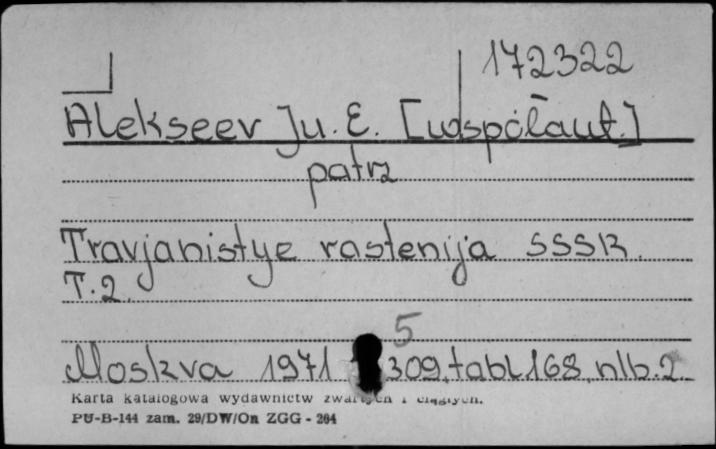 172322
Alekseev Ju. E. [współaut.]
patrz
Travjanistye rastenija SSSR.
T.2.
5
Moskva 1971 309, tabl. 168, nlb. 2.
Karta katalogowa wydawnictw zwartych i ciągłych.
PU-B-144 zam. 29/DW/On ZGG - 264